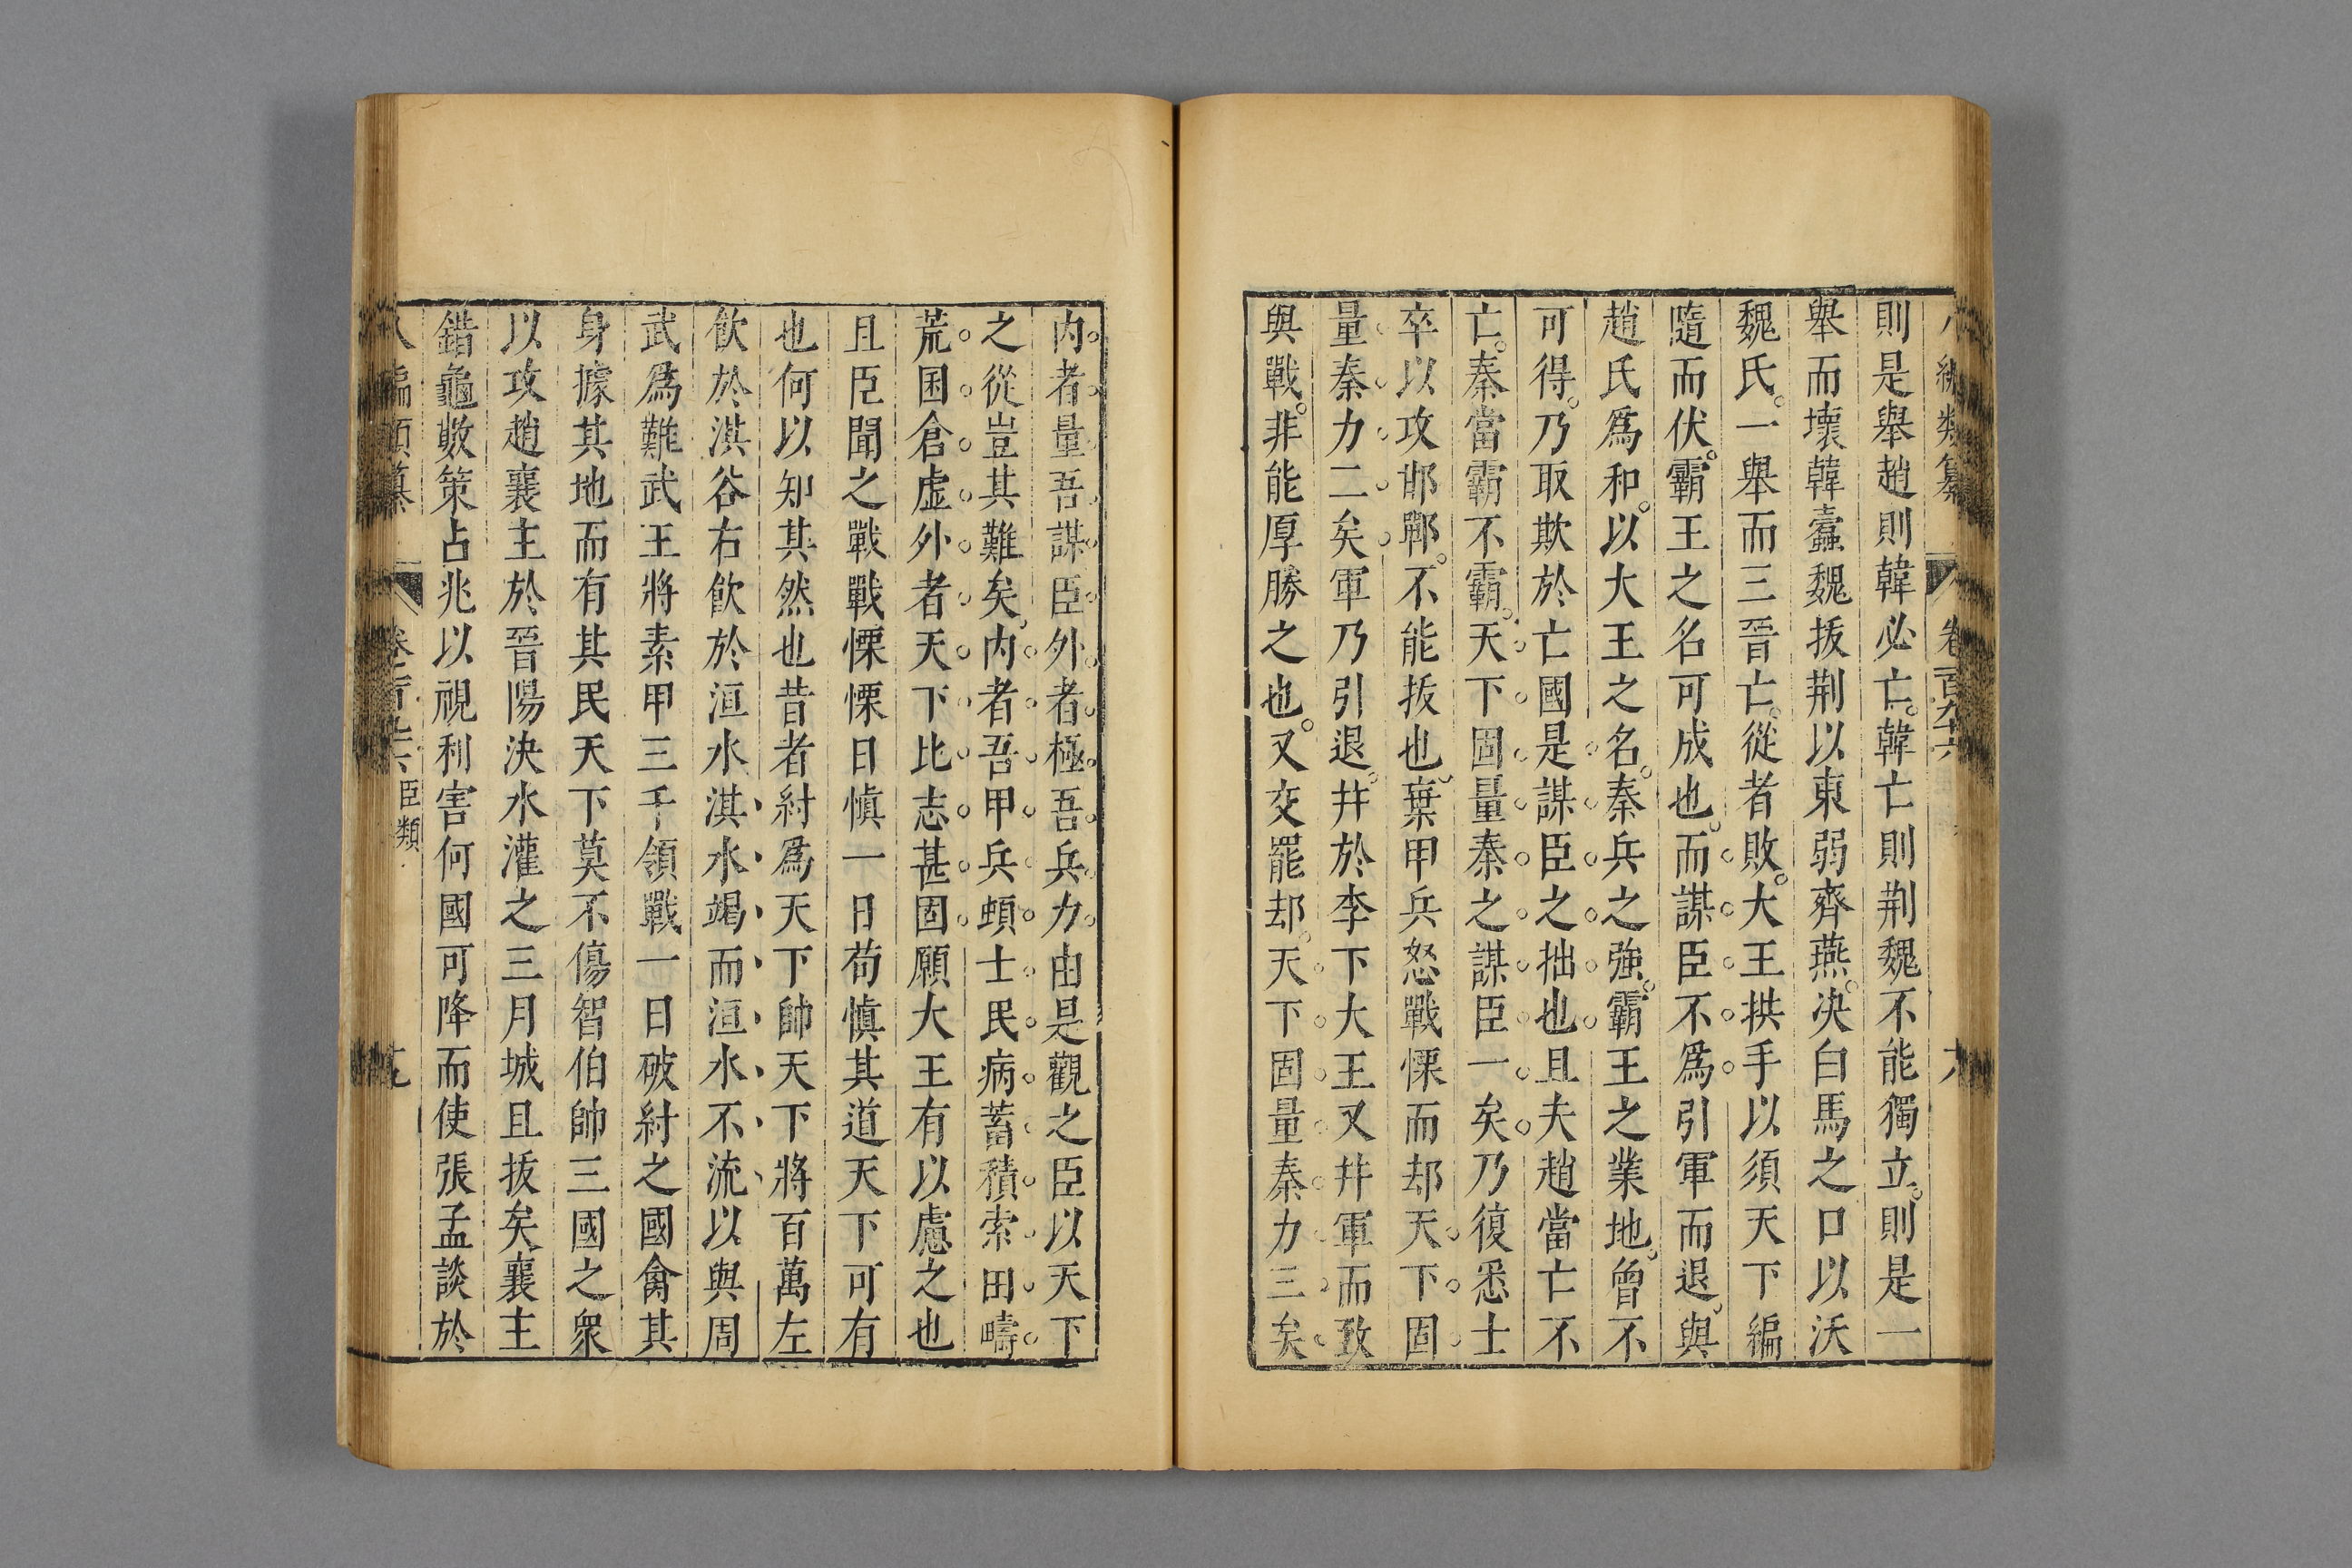 編類纂 卷一百九十六
則是舉趙則韓必亡韓亡則荆魏不能獨立則是一
舉而壞韓蠹魏抜荆以東弱齊燕决白馬之口以沃
魏氏一舉而三晉亡從者敗大王拱手以須天下編
隨而伏霸王之名可成也而謀臣不爲引軍而退與
趙氏爲和以大王之名秦兵之強霸王之業地曾不
可得乃取欺於亡國是謀臣之拙也且夫趙當亡不
亡秦當霸不霸天下固量秦之謀臣一矣乃復悉士
卒以攻邯鄲不能抜也棄甲兵怒戰慄而却天下固
量秦力二矣軍乃引退并於李下大王又并軍而致
與戰非能厚勝之也又交罷却天下固量秦力三矣
内者量吾謀臣外者極吾兵力由是觀之臣以天下
之從豈其難矣内者吾甲兵頓士民病蓄積索田疇
荒囷倉虛外者天下比志甚固願大王有以慮之也
且臣聞之戰戰慄慄日慎一日苟慎其道天下可有
也何以知其然也昔者紂爲天下帥天下將百萬左
飲於淇谷右飲於洹水淇水竭而洹水不流以與周
武爲難武王將素甲三千領戰一日破紂之國禽其
身據其地而有其民天下莫不傷智伯帥三國之衆
以攻趙襄主於晉陽決水灌之三月城且抜矣襄主
錯龜數策占兆以視利害何國可降而使張孟談於
八編類纂 卷一百九十六 臣類